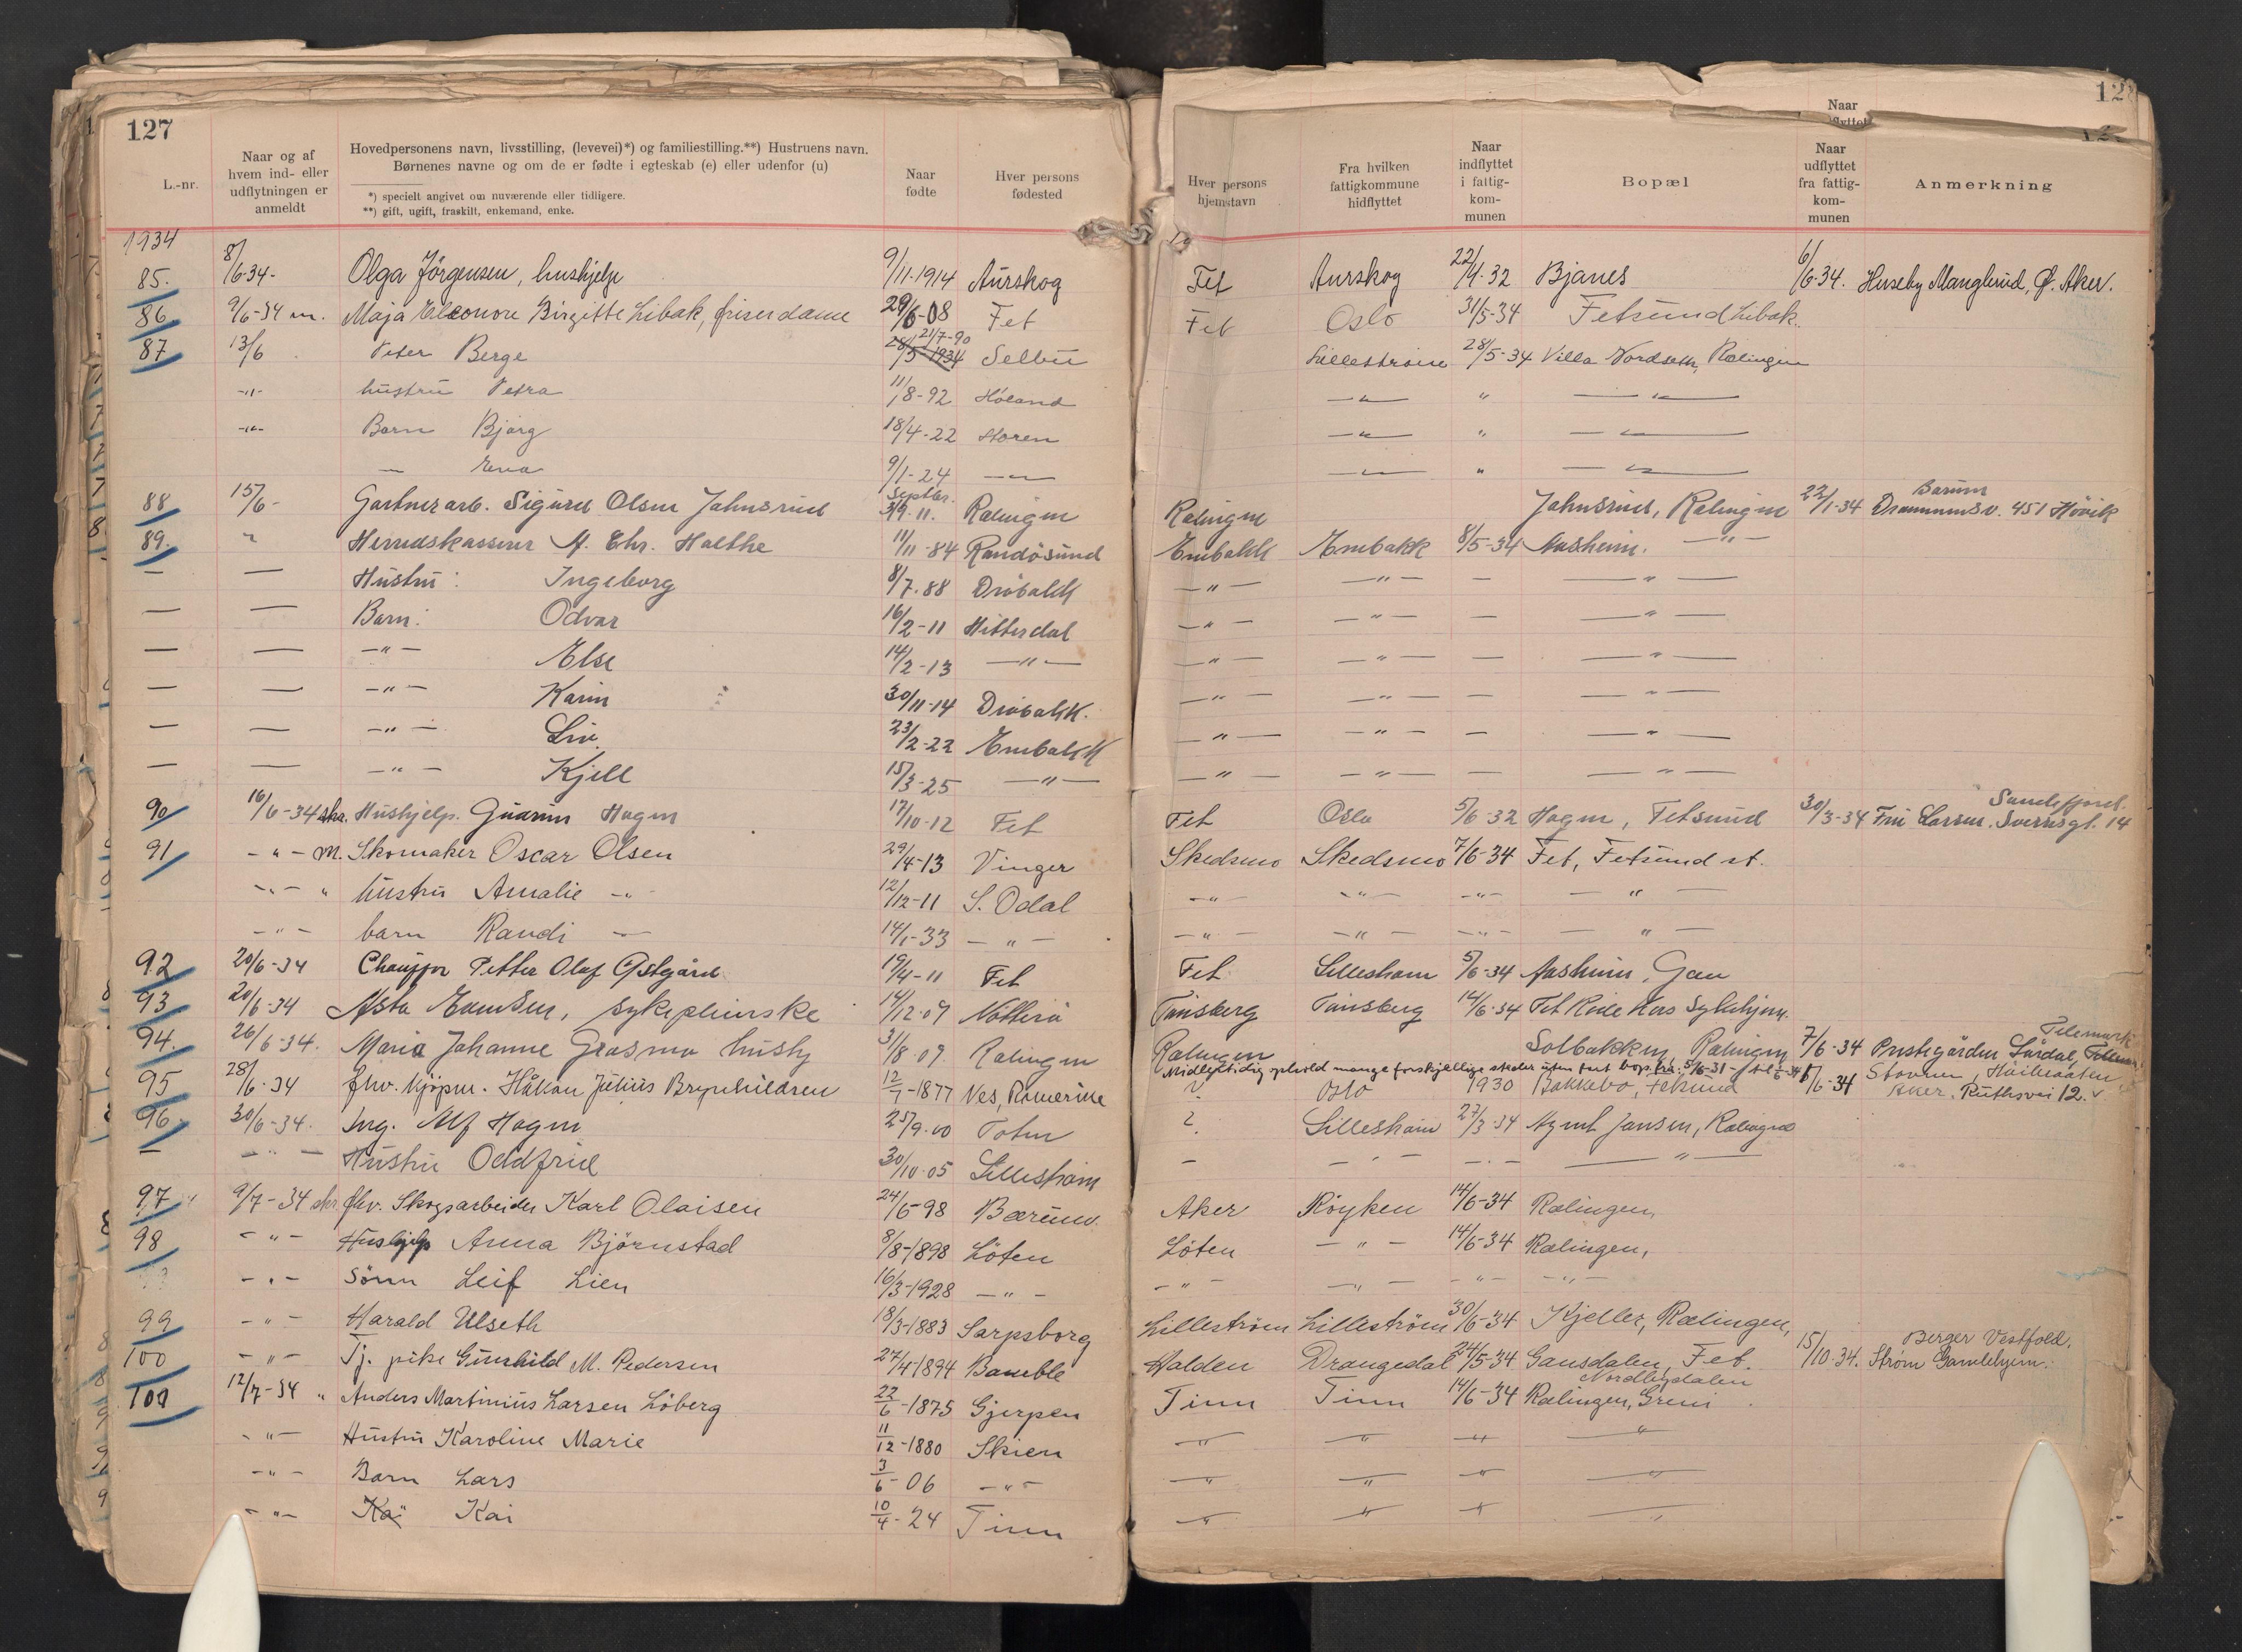 127
L.-nr.
Naar og af hvem ind- eller udflytningen er anmeldt
Hovedpersonens navn, livsstilling, (levevei)*) og familiestilling.**) Hustruens navn. Børnenes navne og om de er fødte i egteskab (e) eller udenfor (u)
*) specielt angivet om nuværende eller tidligere.
**) gift, ugift, fraskilt, enkemand, enke.
Naar fødte
Hver persons fødested
Hver persons hjemstavn
Fra hvilken fattigkommune hidflyttet
Naar indflyttet i fattigkommunen
Bopæl
Naar udflyttet fra fattigkommunen
Anmerkning
1934
85. 8/6-34- Olga Jörgensen, hushjelp 9/11-1914 Aurskog Fet Aurskog 22/4-32 Bjanes 6/6-34. Huseby Manglerud, Ø. Aker.
86 9/6-34 m. Maja Eleonore Birgitte Libak, friserdame 29/6-08 Fet Fet Oslo 31/5-34 Fetsund Libak.
87 13/6 Peter Berge 21/7-90 28/5-1934 Selbu Lillestrøm 28/5-34 Villa Nordseth, Rælingen
-"- hustru Petra 11/8-92 Høland -"- " -"-
-"- Barn Bjørg 18/4-22 Støren -"- " -"-
— Erna 9/1-24 -"- -"- " -"-
88 15/6- Gartnerarb. Sigurd Olsen Jahnsrud Septbr. 3/9-11. Rælingen Rælingen Jahnsrud, Rælingen 22/1-34 Bærum Drammensv. 451 Høvik
89. " Herredskasserer M. Chr. Holthe 11/11-84 Randösund Enebakk Enebakk 8/5-34 Aasheim. -"-
— — Hustru: Ingeborg 8/7-88 Dröbakk -"- -"- — -"-
— — Barn: Odvar 16/2-11 Hitterdal -"- -"- — -"-
— — -"- Else 14/2-13 -"- -"- -"- — -"-
— — -"- Karin 30/11-14 Dröbakk. -"- -"- — -"-
— — -"- Liv. 23/2-22 Enebakk -"- -"- — -"-
— — -"- Kjell 15/3-25 -"- -"- -"- — -"-
90 16/6-34 skr. Hushjelp. Gudrun Hagen 17/10-12 Fet Fet Oslo 5/6-32 Hagen, Fetsund 30/3-34 Sandefjord. Fru Larsen. Sverresgt. 14
91 -"- m. Skomaker Oscar Olsen 29/4-13 Vinger Skedsmo Skedsmo 7/6-34 Fet, Fetsund st.
-"- " hustru Amalie -"- 12/12-11 S. Odal -"- -"- -"- -"-
-"- barn Randi — 14/1-33 -"- -"- -"- -"- -"-
92 20/6-34 Chauffør Petter Olaf Østgård 19/4-11 Fet Fet Lillesham 5/6-34 Aasheim, Gan
93 20/6-34 Asta Evensen, sykepleierske 14/12-09 Nötterö Tønsberg Tønsberg 14/6-34 Fet Røde Kors Sykehjem.
94. 26/6-34. Maria Johanne Grasmo hushj 31/8-09. Rælingen Rælingen Solbakken, Rælingen 7/6-34 Prestegården Lårdal, Telemark
Midlertidig ophold mange forskjellige steder uten fast bop. fra: 5/6-31 - til 6/6-34
95 28/6-34 fhv. Kjøpm. Håkon Julius Brynhildsen 12/7-1877 Nes, Romerike ? Oslo 1930 Bakkebo, Fetsund 1/6-34 Stovner, Aker. Ruthsvei 12.
96 30/6-34. Ing. Alf Hagen 25/9-00 Toten ? Lillesham 27/3-34 Agent Jansen, Rælingen
— -"- Hustru Oddfrid 30/10-05 Lillesham - -"- -"- -"-
97 9/7-34 skr. fhv. Skogsarbeider Karl Olaisen 24/6-98 Bærum. Aker Röyken 14/6-34 Rælingen,
98 -"- Hushjelp Anna Björnstad 8/8-1898 Löten Löten -"- 14/6-34 Rælingen,
-"- Sönn Leif Lien 16/3-1928 -"- -"- -"- -"- -"-
99 -"- Harald Ulseth 18/3-1883 Sarpsborg Lilleström Lilleström 30/6-34 Kjeller, Rælingen,
100 -"- Tj. pike Gunhild M. Pedersen 27/4-1894 Bamble Halden Drangedal 24/5-34 Gansdalen, Fet. Nordbydalen 15/10-34. Berger Vestfold. Strøm Gamlehjem.
100 12/7-34 " Anders Martinius Larsen Löberg 22/6-1875 Gjerpen Tinn Tinn 14/6-34 Rælingen, Greni
-"- Hustru Karoline Marie 11/12-1880 Skien -"- -"- -"- -"-
-"- Barn Lars 3/6-06 -"- -"- -"- -"- -"-
-"- Kai Kai 10/4-24 Tinn -"- -"- -"- -"-